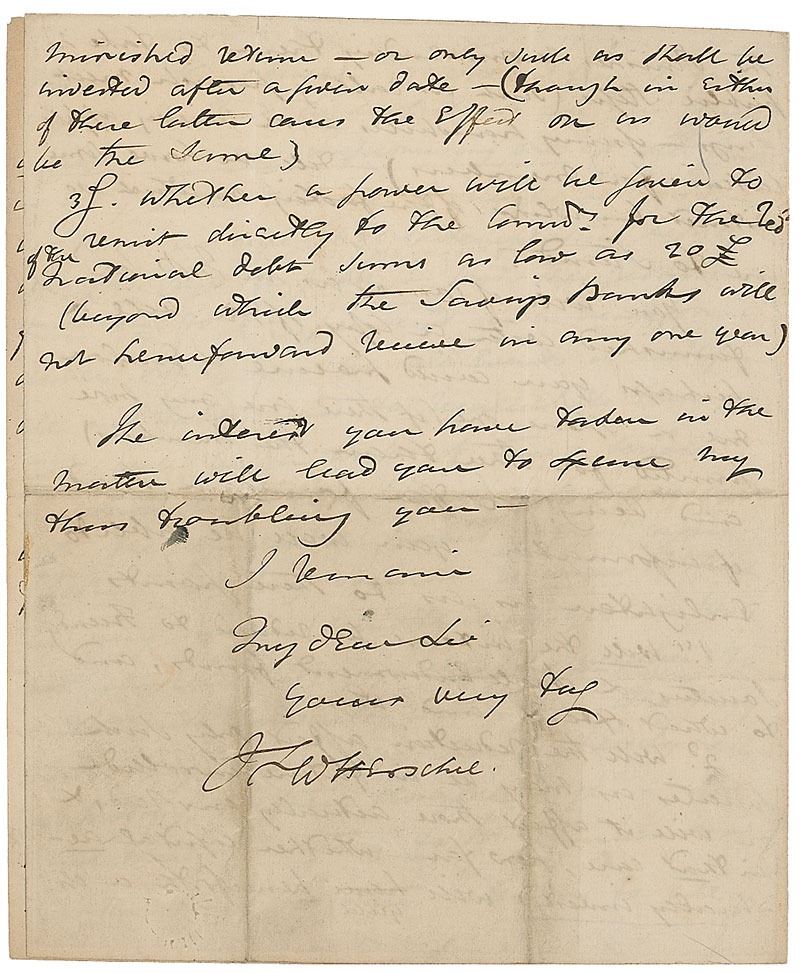 minished return — or only such as shall be
invested after a given date — (though in either
of these latter cases the Effect on us would
be the same)
3ḷy. whether a power will be given to
remit directly to the Commrs. for the Redn
of the
National debt sums as low as 20 £
(beyond which the Savings Banks will
not henceforward receive in any one year)
The interest you have taken in the
matter will lead you to excuse my
thus troubling you —
I remain
My dear Sir
yours very truly
JFW Herschel.